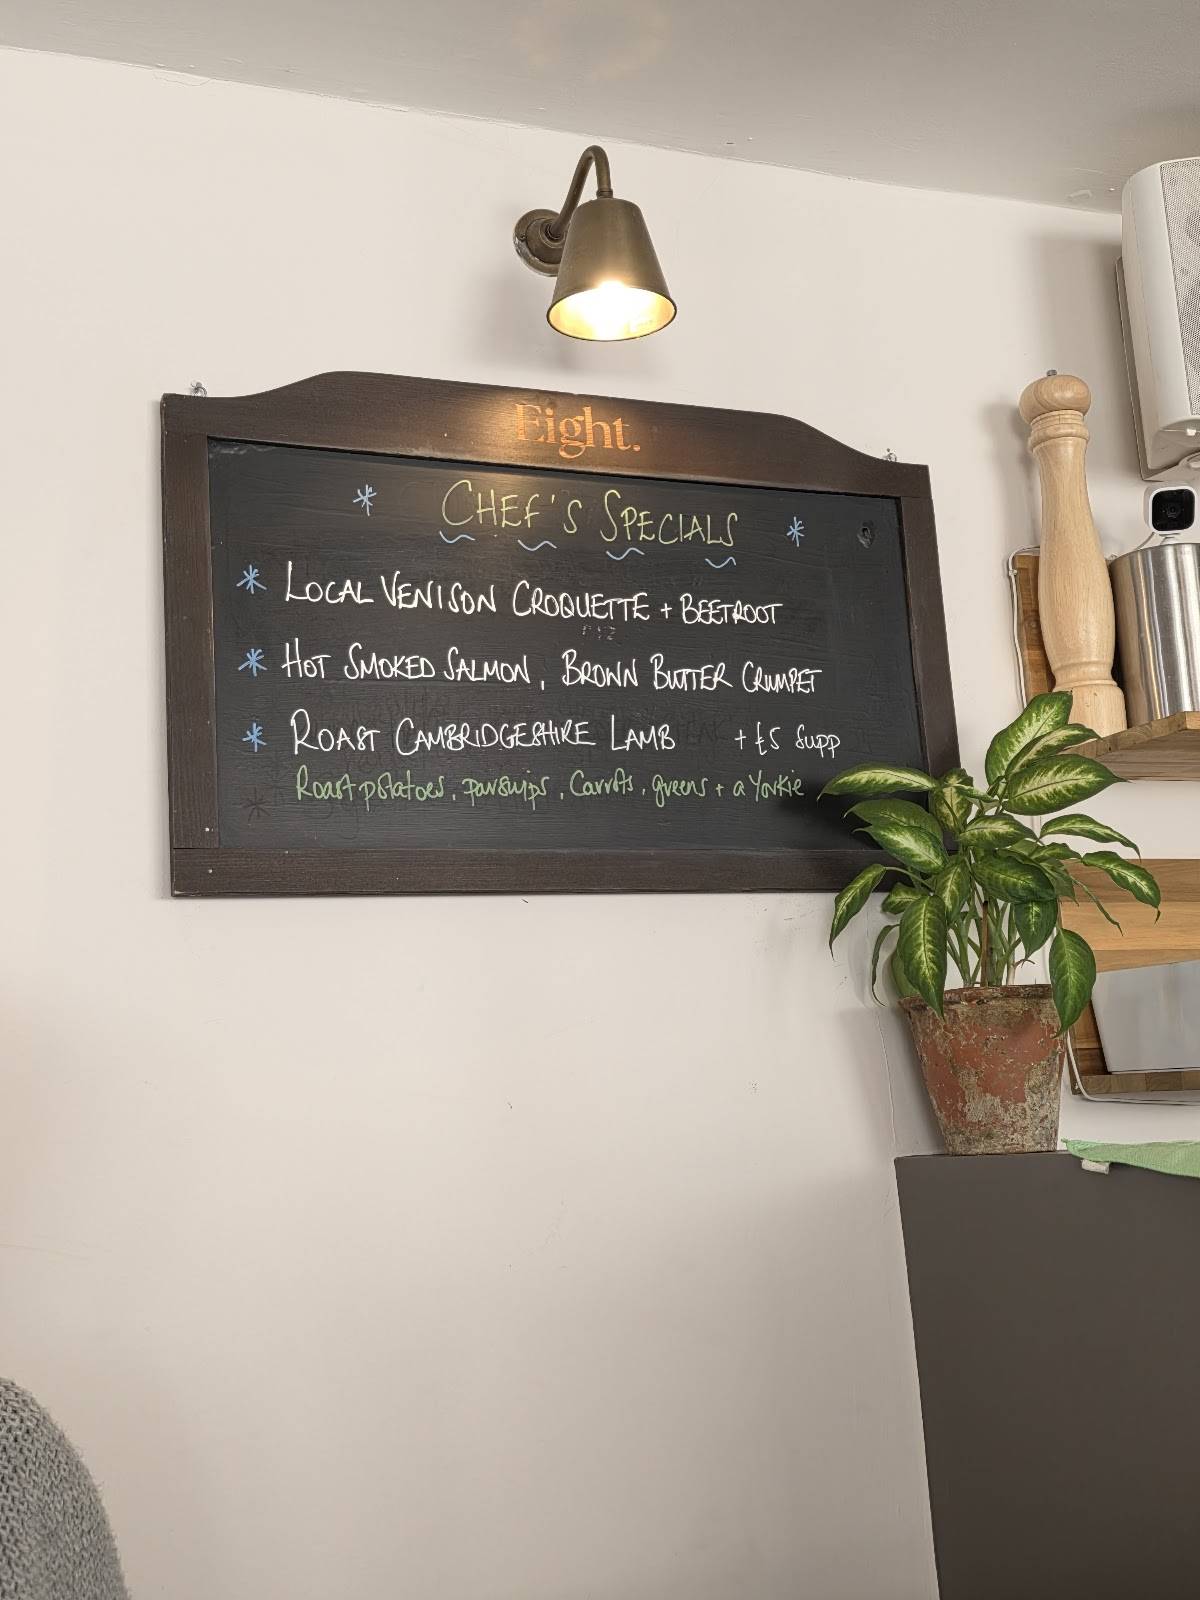 Eight.
* CHEF'S SPECIALS *
* LOCAL VENISON CROQUETTE + BEETROOT
* HOT SMOKED SALMON, BROWN BUTTER CRUMPET
* ROAST CAMBRIDGESHIRE LAMB + £5 supp
Roast potatoes, parsnips, Carrots, greens + a Yorkie